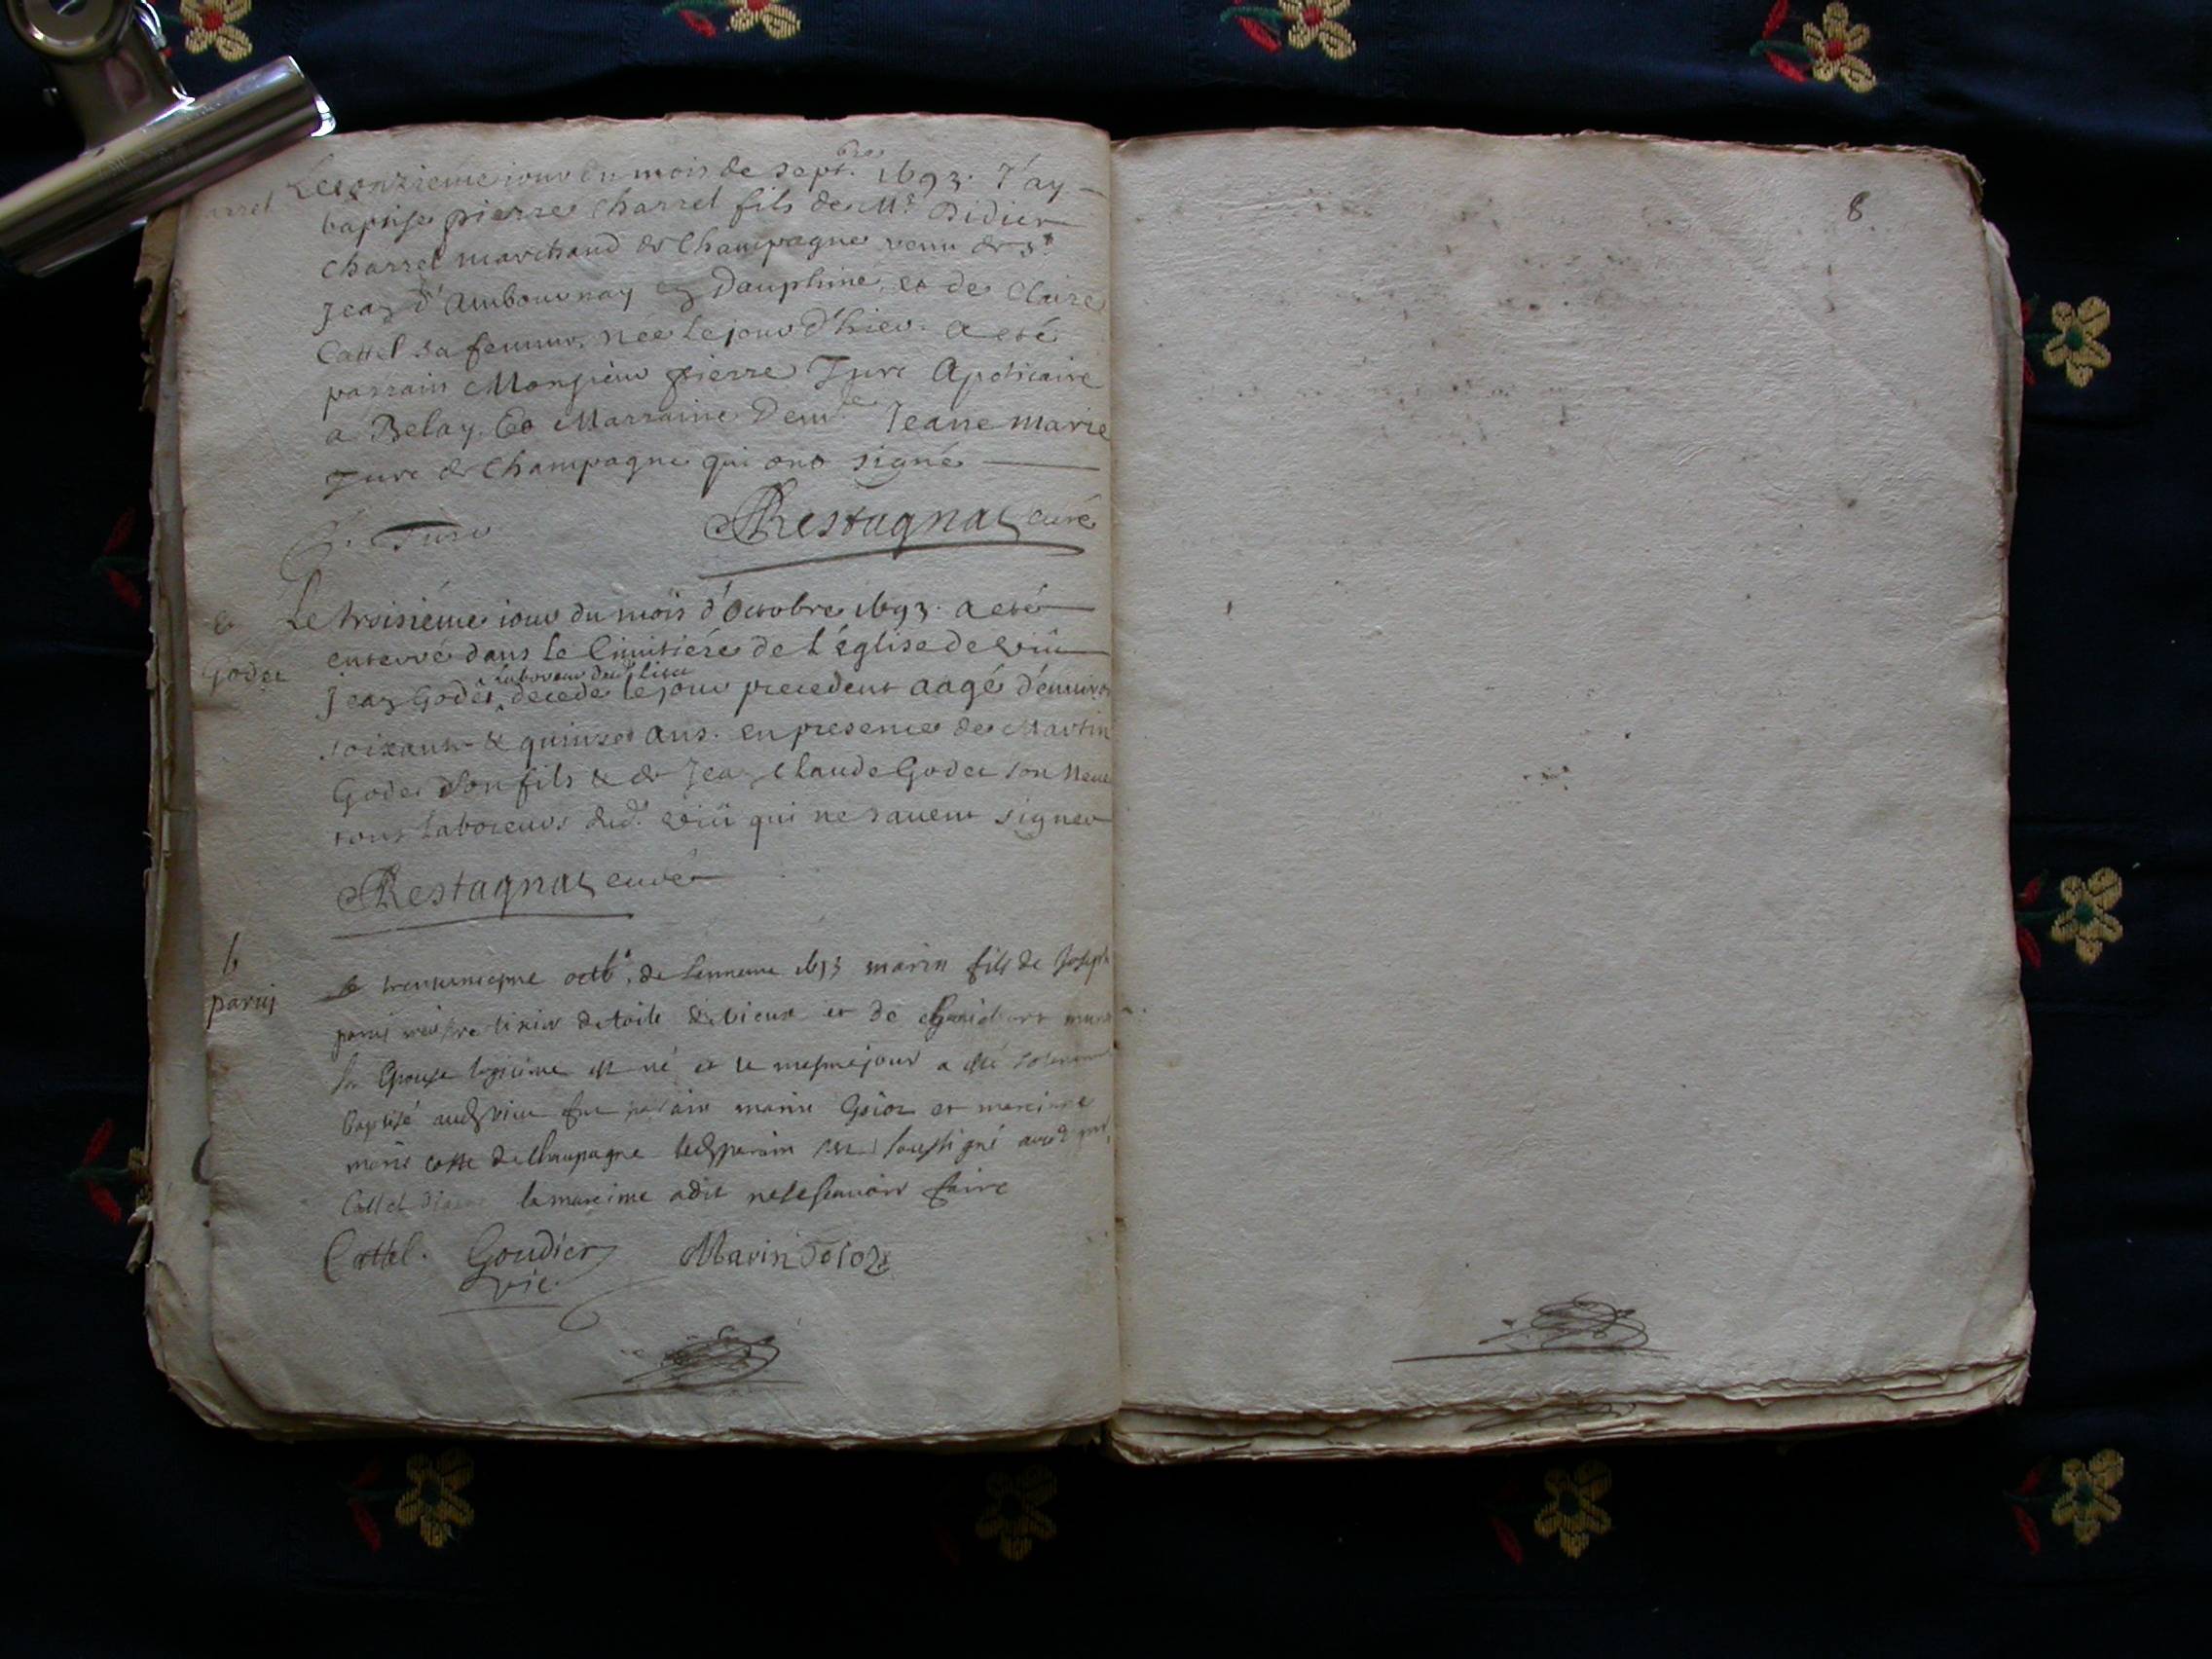 Le onzieme iour du mois de Sept.bre 1693. J'ay
baptisé pierre Charrel fils de Mr. Didier
Charrel marchand de Champagne venu de St.
Jean d'Ambournay en Dauphine, et de Claire
Cattel sa femme, née le jour d'hier. a esté
parrain Monsieur pierre Jure Apoticaire
a Belay. Et Marraine Dem.lle Jeane marie
Jure de Champagne qui ont signé
Restagnat curé
e
Godet
Le troisiéme iour du mois d'Octobre 1693. a esté
enterré dans le Cimitiére de l'église de viü
laboreur dud. lieu
Jean Godet, decedé le jour precedent aagé d'enuiron
soixante & quinze ans. en presence de Martin
Godet son fils & de Jean Claude Godet son Neue
tous laboreurs dud. viü qui ne sauent signer
Restagnat curé
b
paruj
octb. de 1693 marin fils de Joseph
de toile de vieux et de
legitime est né et le mesme jour a esté
Baptisé aud vieu fut parain marin et
marie cotte de Champagne led parain soussigné auec
Cattel la mareime a dit ne le scauoir faire
Cattel. Goudier Marin
vic.
8